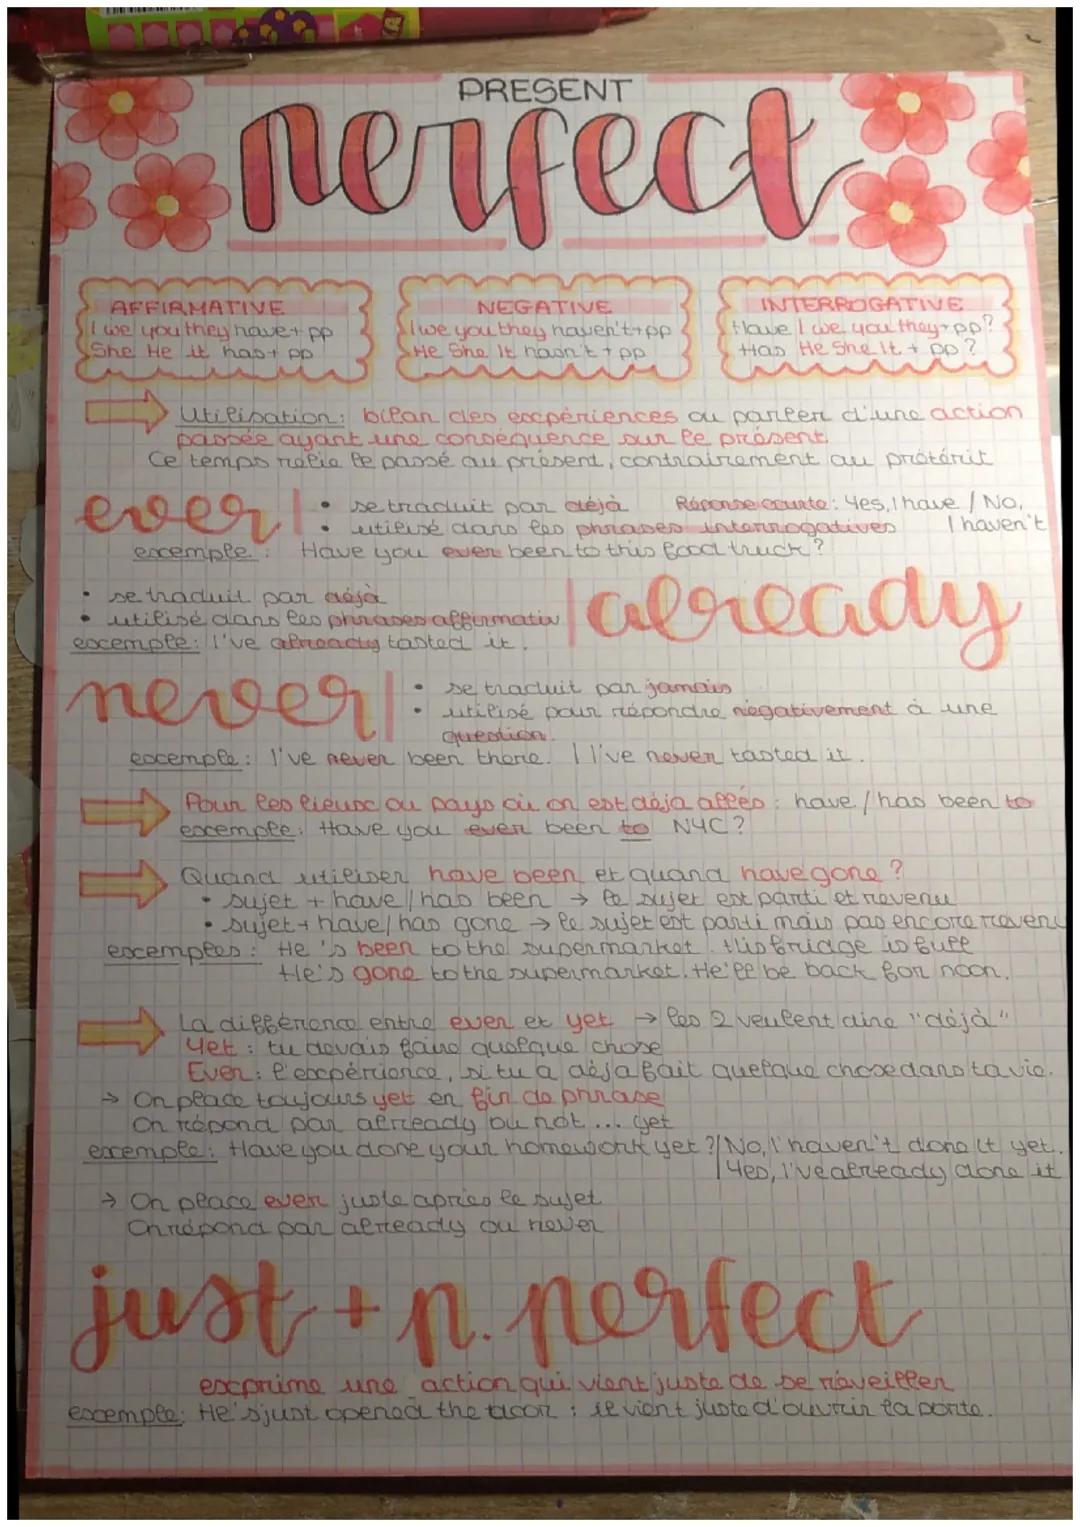 PRESENT
perfect
AFFIRMATIVE
I we you they have + pp
She He it has + pp
NEGATIVE
I we you they haven't + pp
He She It hasn't + pp
INTERROGATIVE
Have I we you they + pp?
Has He She It + pp?
Utilisation: bilan des expériences ou parler d'une action
passée ayant une conséquence sur le présent.
Ce temps relie le passé au présent, contrairement au prétérit
ever
• se traduit par déjà
• utilisé dans les phrases interrogatives
Réponse courte: Yes, I have / No,
I haven't
exemple: Have you ever been to this food truck?
already
• se traduit par déjà
• utilisé dans les phrases affirmativ
exemple: I've already tasted it.
never
• se traduit par jamais
• utilisé pour répondre négativement à une
question.
exemple: I've never been there. | I've never tasted it.
Pour les lieux ou pays où on est déjà allés: have/has been to
exemple: Have you ever been to NYC?
Quand utiliser have been et quand have gone?
• sujet + have/has been → le sujet est parti et revenu
• sujet + have/has gone → le sujet est parti mais pas encore revenu
exemples: He's been to the supermarket. His fridge is full
He's gone to the supermarket. He'll be back for noon.
La différence entre ever et yet → les 2 veulent dire "déjà"
Yet: tu devais faire quelque chose
Ever: l'expérience, si tu a déjà fait quelque chose dans ta vie.
→ On place toujours yet en fin de phrase
On répond par already ou not... yet
exemple: Have you done your homework yet?/No, I haven't done it yet.
Yes, I've already done it
→ On place ever juste après le sujet
On répond par already ou never
just + p. perfect
exprime une action qui vient juste de se réveiller
exemple: He's just opened the door: il vient juste d'ouvrir la porte.